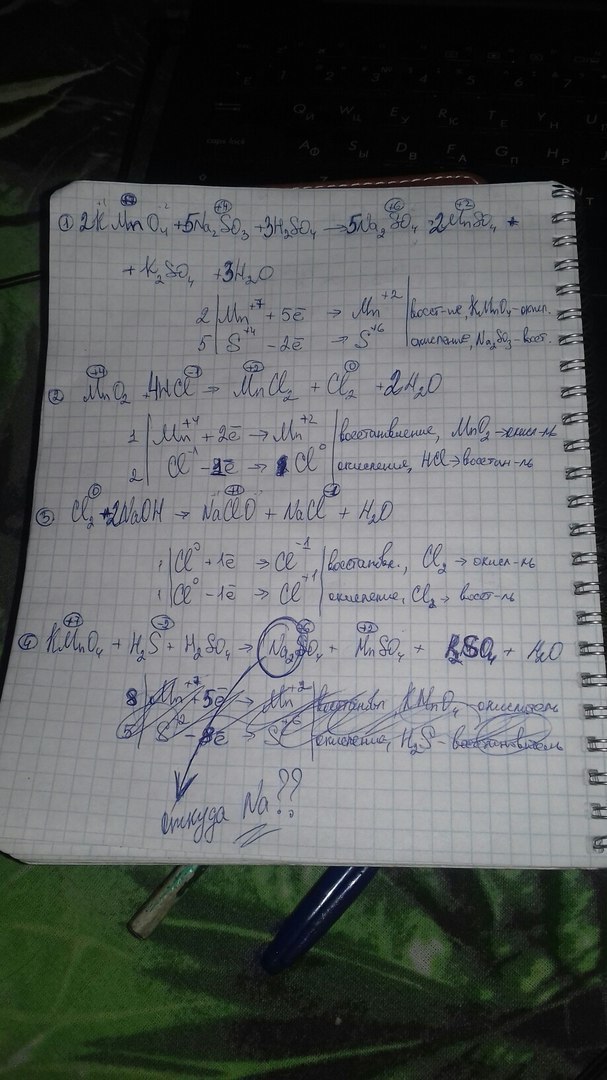 ① 2KMnO₄ + 5Na₂SO₃ + 3H₂SO₄ → 5Na₂SO₄ + 2MnSO₄ +
+ K₂SO₄ + 3H₂O
2 | Mn⁺⁷ + 5ē → Mn⁺² | восст-ие, KMnO₄-окисл.
5 | S⁺⁴ - 2ē → S⁺⁶ | окисление, Na₂SO₃-восст.
② MnO₂ + 4HCl → MnCl₂ + Cl₂ + 2H₂O
1 | Mn⁺⁴ + 2ē → Mn⁺² | восстановление, MnO₂ → окисл-ль
2 | Cl⁻¹ - 1ē → Cl⁰ | окисление, HCl → восстан-ль
③ Cl₂ + 2NaOH → NaClO + NaCl + H₂O
1 | Cl⁰ + 1ē → Cl⁻¹ | восстановл., Cl₂ → окисл-ль
1 | Cl⁰ - 1ē → Cl⁺¹ | окисление, Cl₂ → восст-ль
④ KMnO₄ + H₂S + H₂SO₄ → Na₂SO₄ + MnSO₄ + K₂SO₄ + H₂O
8 | Mn⁺⁷ + 5ē → Mn⁺² | KMnO₄ - окислитель
5 | S⁻² - 8ē → S⁺⁶ | окисление, H₂S - восстановитель
откуда Na??